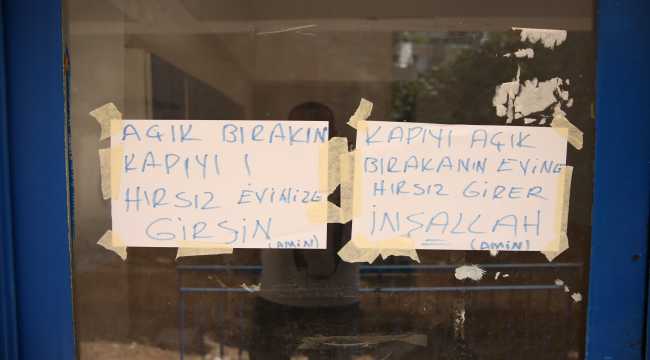 AÇIK BIRAKIN
KAPIYI !
HIRSIZ EVİNİZE
GİRSİN
(AMİN)
KAPIYI AÇIK
BIRAKANIN EVİNE
HIRSIZ GİRER
İNŞALLAH
(AMİN)